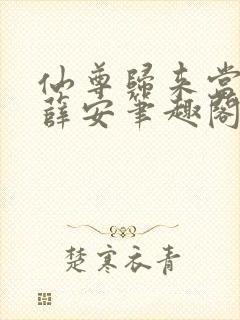 仙尊歸來當
薛安筆趣閣
楚寒衣青